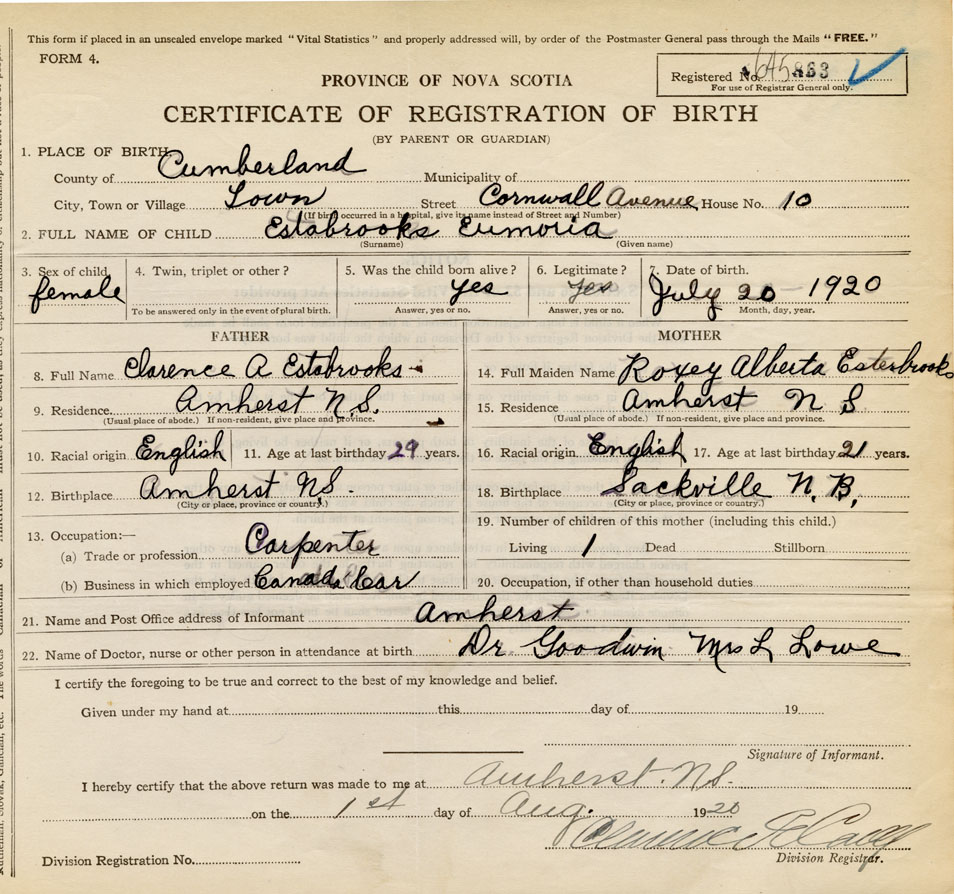 This form if placed in an unsealed envelope marked "Vital Statistics" and properly addressed will, by order of the Postmaster General pass through the Mails "FREE."
FORM 4.
Registered No. 645863
For use of Registrar General only.
PROVINCE OF NOVA SCOTIA
CERTIFICATE OF REGISTRATION OF BIRTH
(BY PARENT OR GUARDIAN)
1. PLACE OF BIRTH
County of Cumberland Municipality of
City, Town or Village Town Street Cornwall Avenue House No. 10
(If birth occurred in a hospital, give its name instead of Street and Number)
2. FULL NAME OF CHILD Estabrooks Eumoria
(Surname) (Given name)
3. Sex of child 4. Twin, triplet or other? 5. Was the child born alive? 6. Legitimate? 7. Date of birth.
female yes yes July 20 1920
To be answered only in the event of plural birth. Answer, yes or no. Answer, yes or no. Month, day, year.
FATHER
8. Full Name Clarence A Estabrooks
9. Residence Amherst N.S.
(Usual place of abode.) If non-resident, give place and province.
10. Racial origin English 11. Age at last birthday 29 years.
12. Birthplace Amherst N.S.
(City or place, province or country.)
13. Occupation:—
(a) Trade or profession Carpenter
(b) Business in which employed Canada Car
MOTHER
14. Full Maiden Name Roxey Alberta Esterbrooks
15. Residence Amherst N S
(Usual place of abode.) If non-resident, give place and province.
16. Racial origin English 17. Age at last birthday 21 years.
18. Birthplace Sackville N.B.
(City or place, province or country.)
19. Number of children of this mother (including this child.)
Living 1 Dead Stillborn
20. Occupation, if other than household duties
21. Name and Post Office address of Informant Amherst
22. Name of Doctor, nurse or other person in attendance at birth Dr Goodwin Mrs L Lowe
I certify the foregoing to be true and correct to the best of my knowledge and belief.
Given under my hand at this day of 19
Signature of Informant.
I hereby certify that the above return was made to me at Amherst. N.S.
on the 1st day of Aug. 1920
Division Registrar.
Division Registration No.